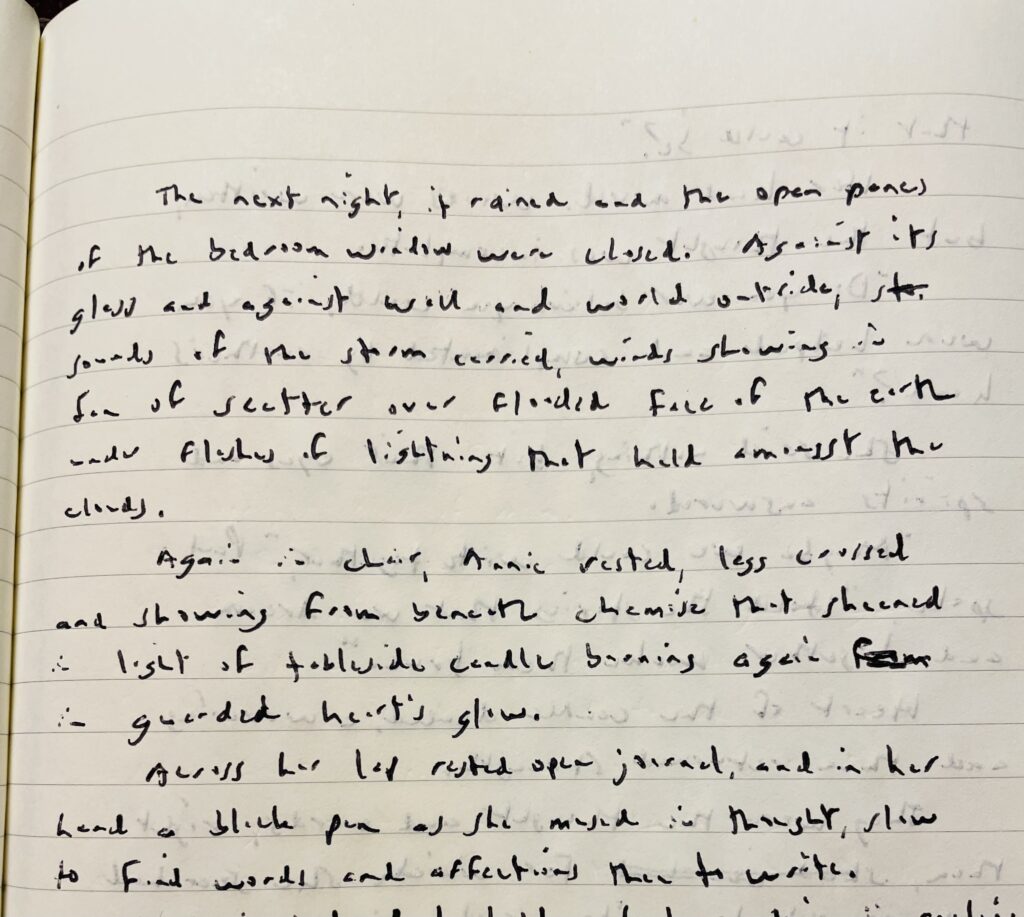 The next night, it rained and the open panes
of the bedroom window were closed. Against its
glass and against wall and world outside,
sounds of the storm carried, winds showing in
fan of scatter over flooded face of the earth
under flashes of lightning that held amongst the
clouds.
Again in chair, Annie rested, legs crossed
and showing from beneath chemise that sheened
in light of tableside candle burning again
in guarded heart's glow.
Across her lap rested open journal, and in her
hand a black pen as she mused in thought, slow
to find words and affections then to write.